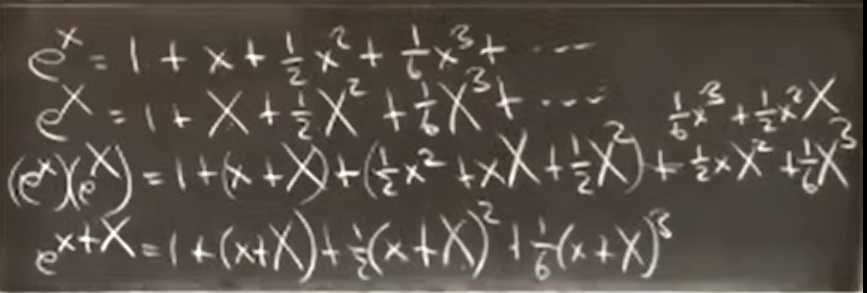 eˣ = 1 + x + ½x² + ⅙x³ + ----
e^X = 1 + X + ½X² + ⅙X³ + ---
⅙x³ + ½x²X
(eˣ)(e^X) = 1 + (x + X) + (½x² + xX + ½X²) + ½xX² + ⅙X³
e^(x+X) = 1 + (x+X) + ½(x+X)² + ⅙(x+X)³